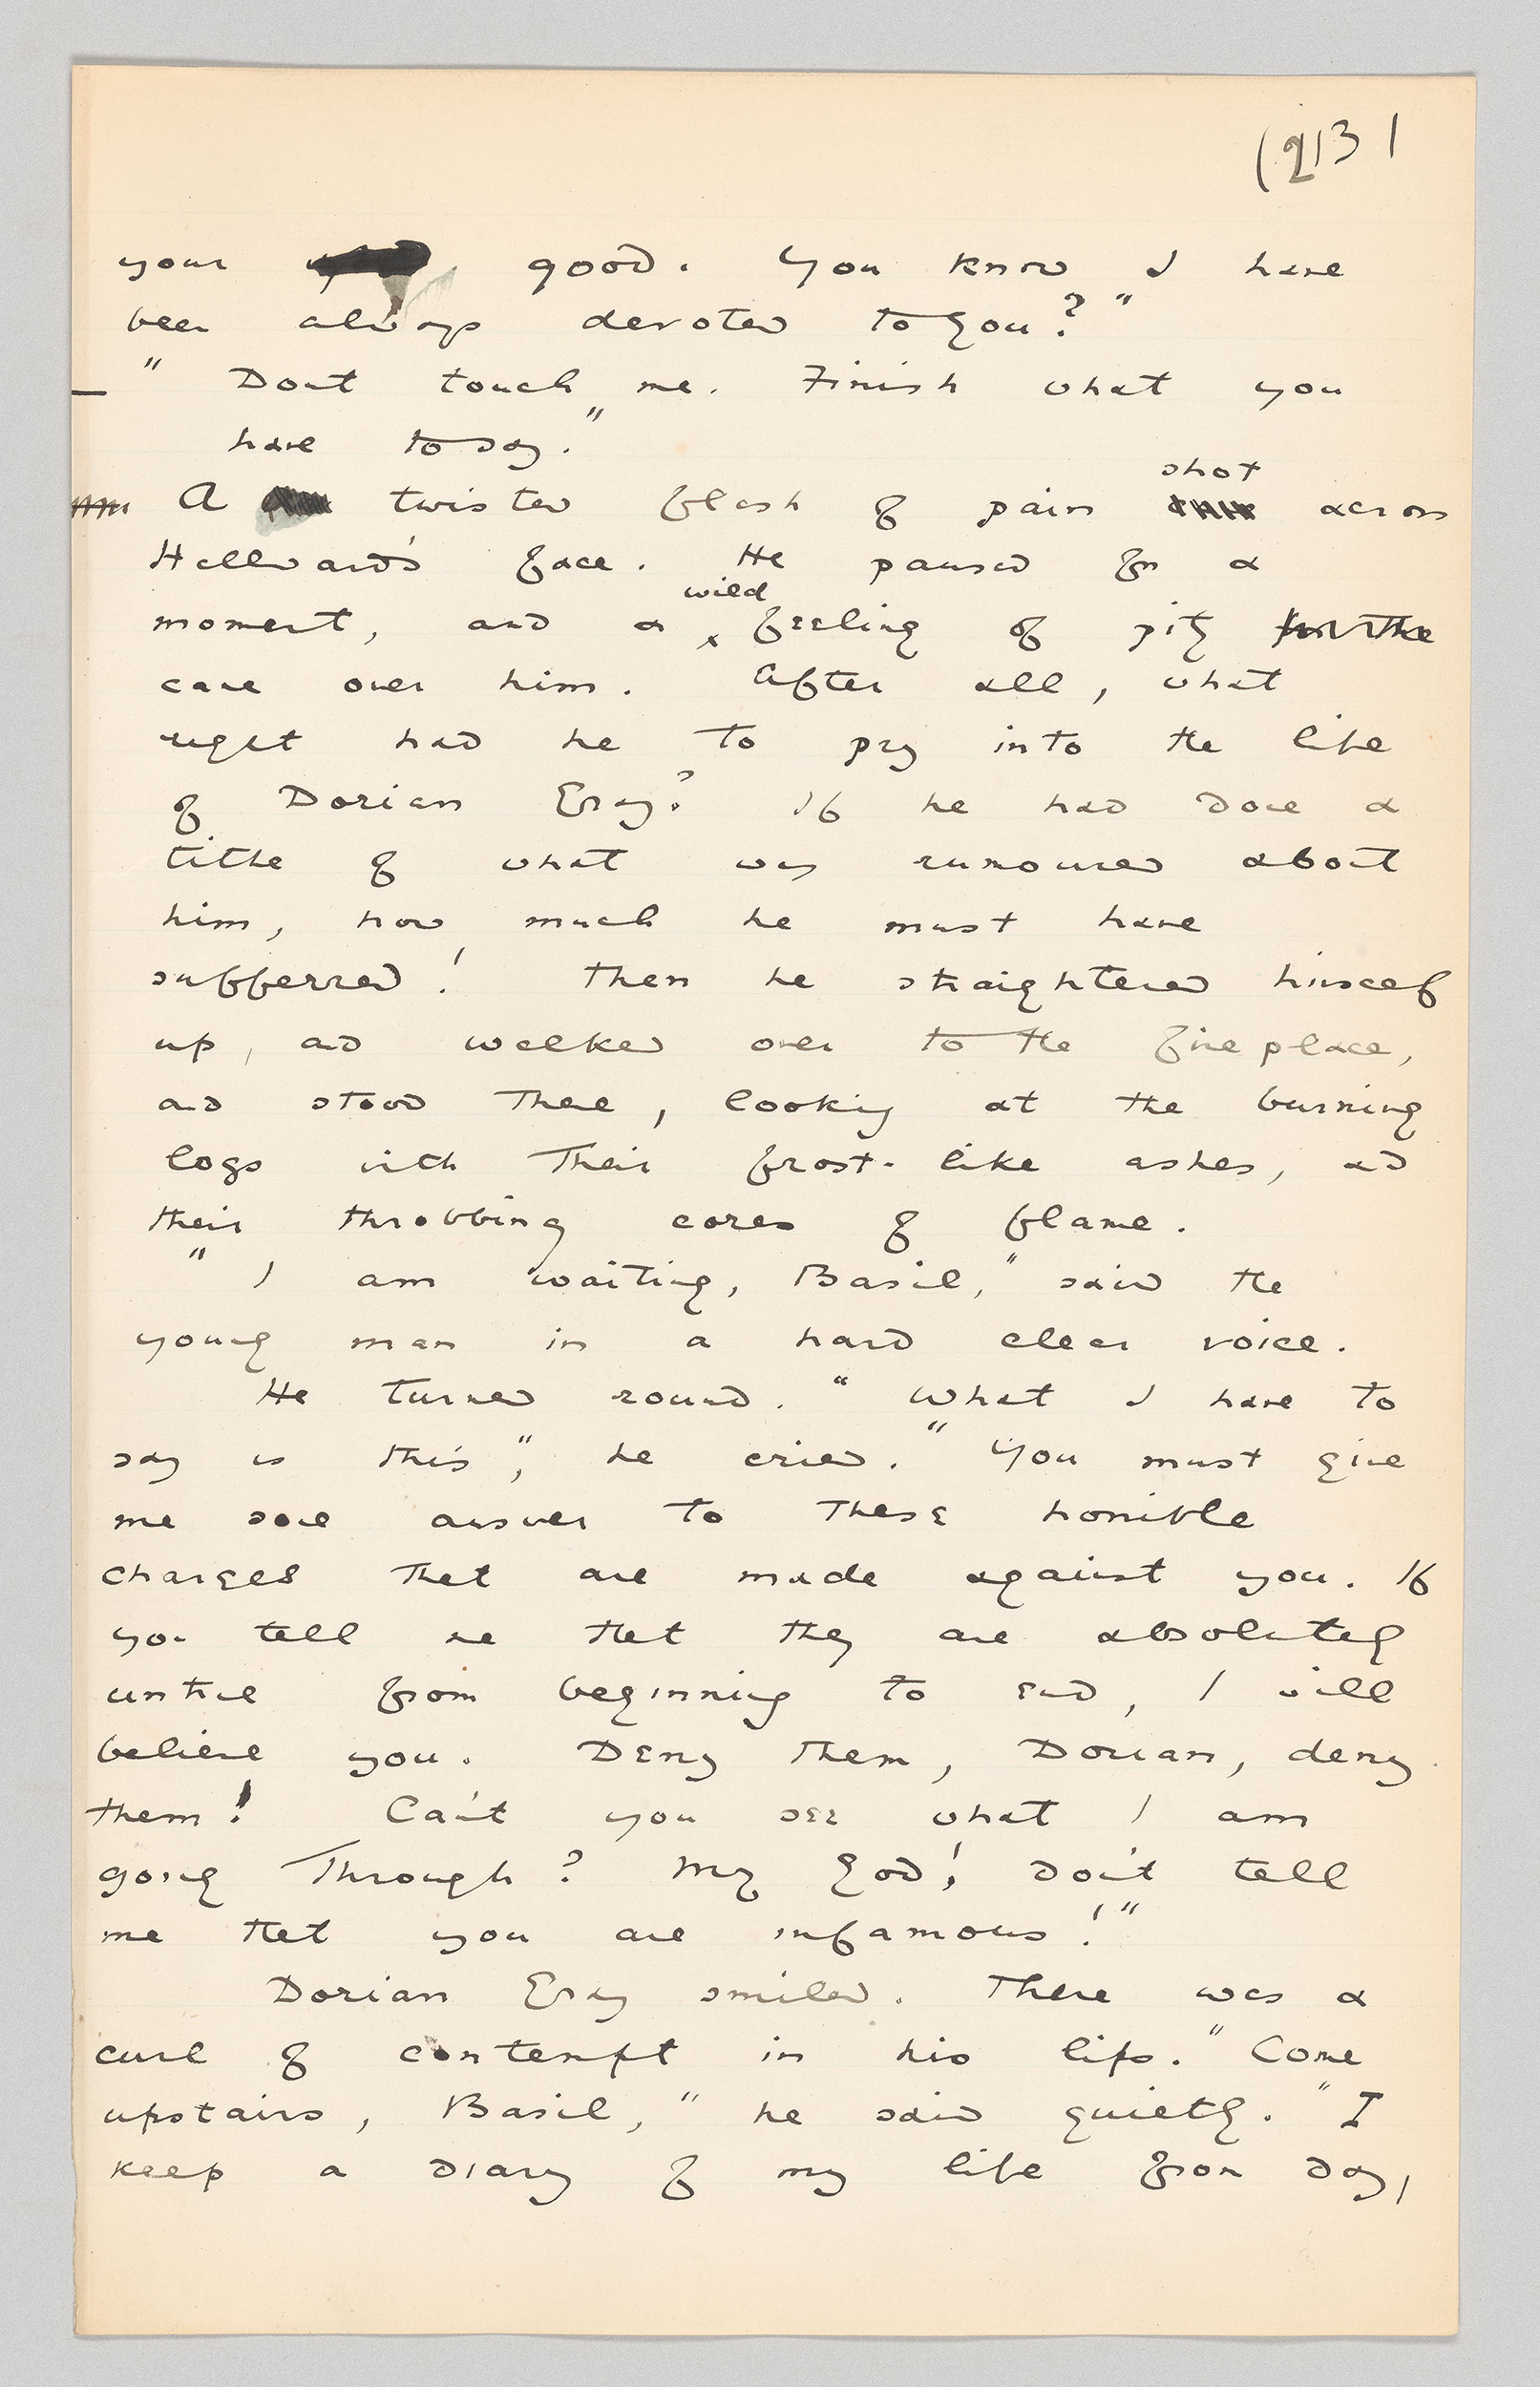 (213)
your good. You know I have
been always devoted to you?"
— "Dont touch me. Finish what you
have to say."
shot
A twisted flash of pain across
Hallward's face. He paused for a
wild
moment, and a feeling of pity
came over him. After all, what
right had he to pry into the life
of Dorian Gray? If he had done a
tithe of what was rumoured about
him, how much he must have
sufferred! Then he straightened himself
up, and walked over to the fireplace,
and stood there, looking at the burning
logs with their frost-like ashes, and
their throbbing cores of flame.
"I am waiting, Basil," said the
young man in a hard clear voice.
He turned round. "What I have to
say is this", he cried. "You must give
me some answer to these horrible
charges that are made against you. If
you tell me that they are absolutely
untrue from beginning to end, I will
believe you. Deny them, Dorian, deny
them! Can't you see what I am
going through? My God! Don't tell
me that you are infamous!"
Dorian Gray smiled. There was a
curl of contempt in his lips. "Come
upstairs, Basil," he said quietly. "I
keep a diary of my life from day,